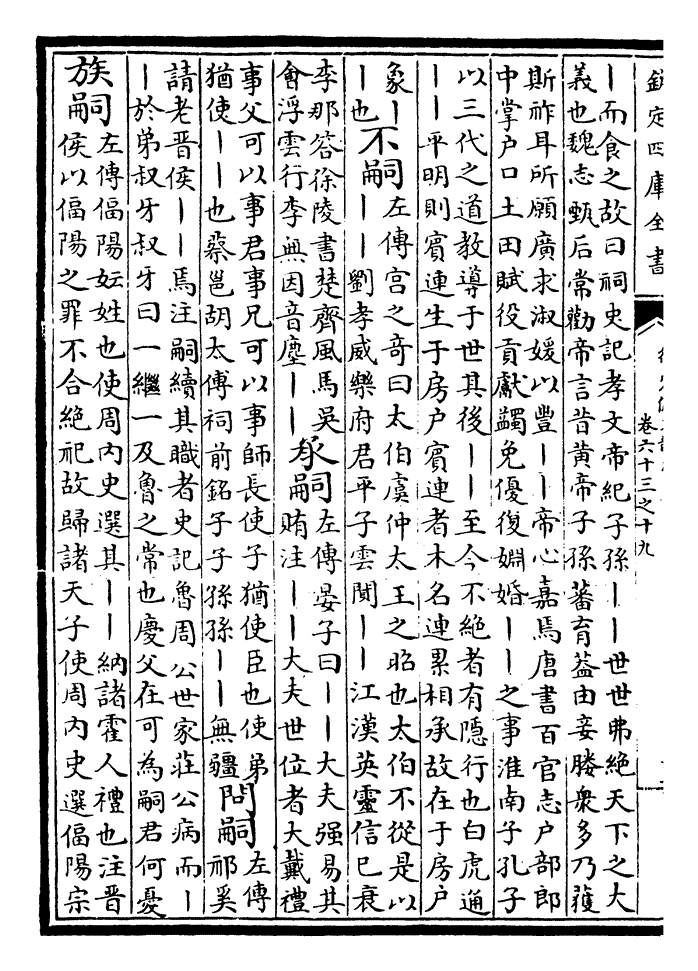 欽定四庫全書
卷六十三之十九
丨而食之故曰祠史記孝文帝紀子孫丨丨世世弗絶天下之大
義也魏志甄后常勸帝言昔黄帝子孫蕃育葢由妾媵衆多乃獲
斯祚耳所願廣求淑媛以豐丨丨帝心嘉焉唐書百官志户部郎
中掌户口土田賦役貢獻蠲免優復婣婚丨丨之事淮南子孔子
以三代之道教導于世其後丨丨至今不絶者有隱行也白虎通
丨丨平明則賓連生于房户賓連者木名連累相承故在于房户
象丨
丨也
不嗣
左傳宫之奇曰太伯虞仲太王之昭也太伯不從是以
丨丨劉孝威樂府君平子雲聞丨丨江漢英靈信已衰
李那答徐陵書楚齊風馬吳
會浮雲行李無因音塵丨丨
承嗣
左傳晏子曰丨丨大夫强易其
賄注丨丨大夫世位者大戴禮
事父可以事君事兄可以事師長使子猶使臣也使弟
猶使丨丨也蔡邕胡太傅祠前銘子子孫孫丨丨無疆
問嗣
左傳
祁奚
請老晋侯丨丨焉注嗣續其職者史記魯周公世家莊公病而丨
丨於弟叔牙叔牙曰一繼一及魯之常也慶父在可為嗣君何憂
族嗣
左傳偪陽妘姓也使周内史選其丨丨納諸霍人禮也注晋
侯以偪陽之罪不合絶祀故歸諸天子使周内史選偪陽宗